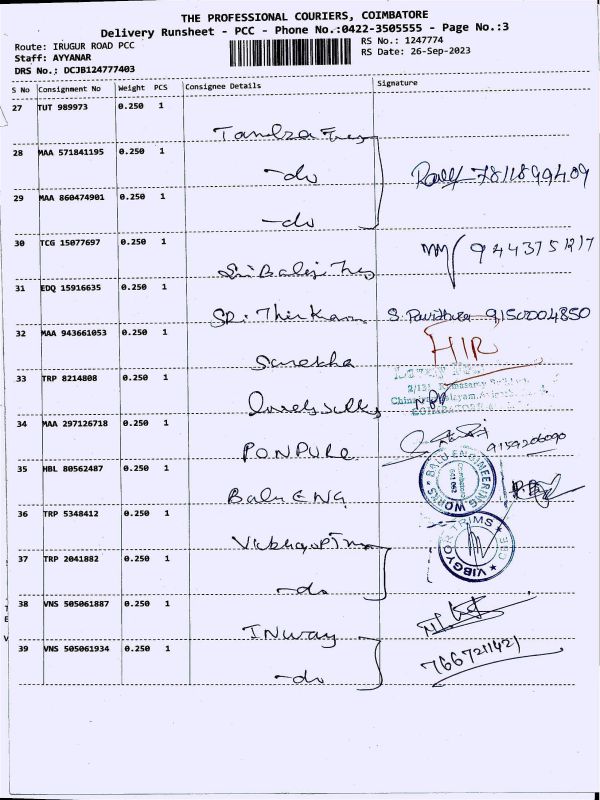 THE PROFESSIONAL COURIERS, COIMBATORE
Delivery Runsheet - PCC - Phone No.:0422-3505555 - Page No.:3
Route: IRUGUR ROAD PCC
RS No.: 1247774
Staff: AYYANAR
RS Date: 26-Sep-2023
DRS No.; DCJB124777403
S No Consignment No Weight PCS Consignee Details Signature
27 TUT 989973 0.250 1
28 MAA 571841195 0.250 1 -do 7811899409
29 MAA 860474901 0.250 1 -do
30 TCG 15077697 0.250 1 Sri Balaji Tex 9443751217
31 EDQ 15916635 0.250 1 S. Pavithra 9150004850
32 MAA 943661053 0.250 1 Surekha HIR
33 TRP 8214808 0.250 1 Lovely Silks
34 MAA 297126718 0.250 1 PONPURE 9159206090
35 HBL 80562487 0.250 1 Balu ENG
BALU ENGINEERING WORKS
Coimbatore
641 062
36 TRP 5348412 0.250 1
VIBGYOR TRIMS CBE
37 TRP 2041882 0.250 1 -do
38 VNS 505061887 0.250 1 INway
39 VNS 505061934 0.250 1 -do 7667211421